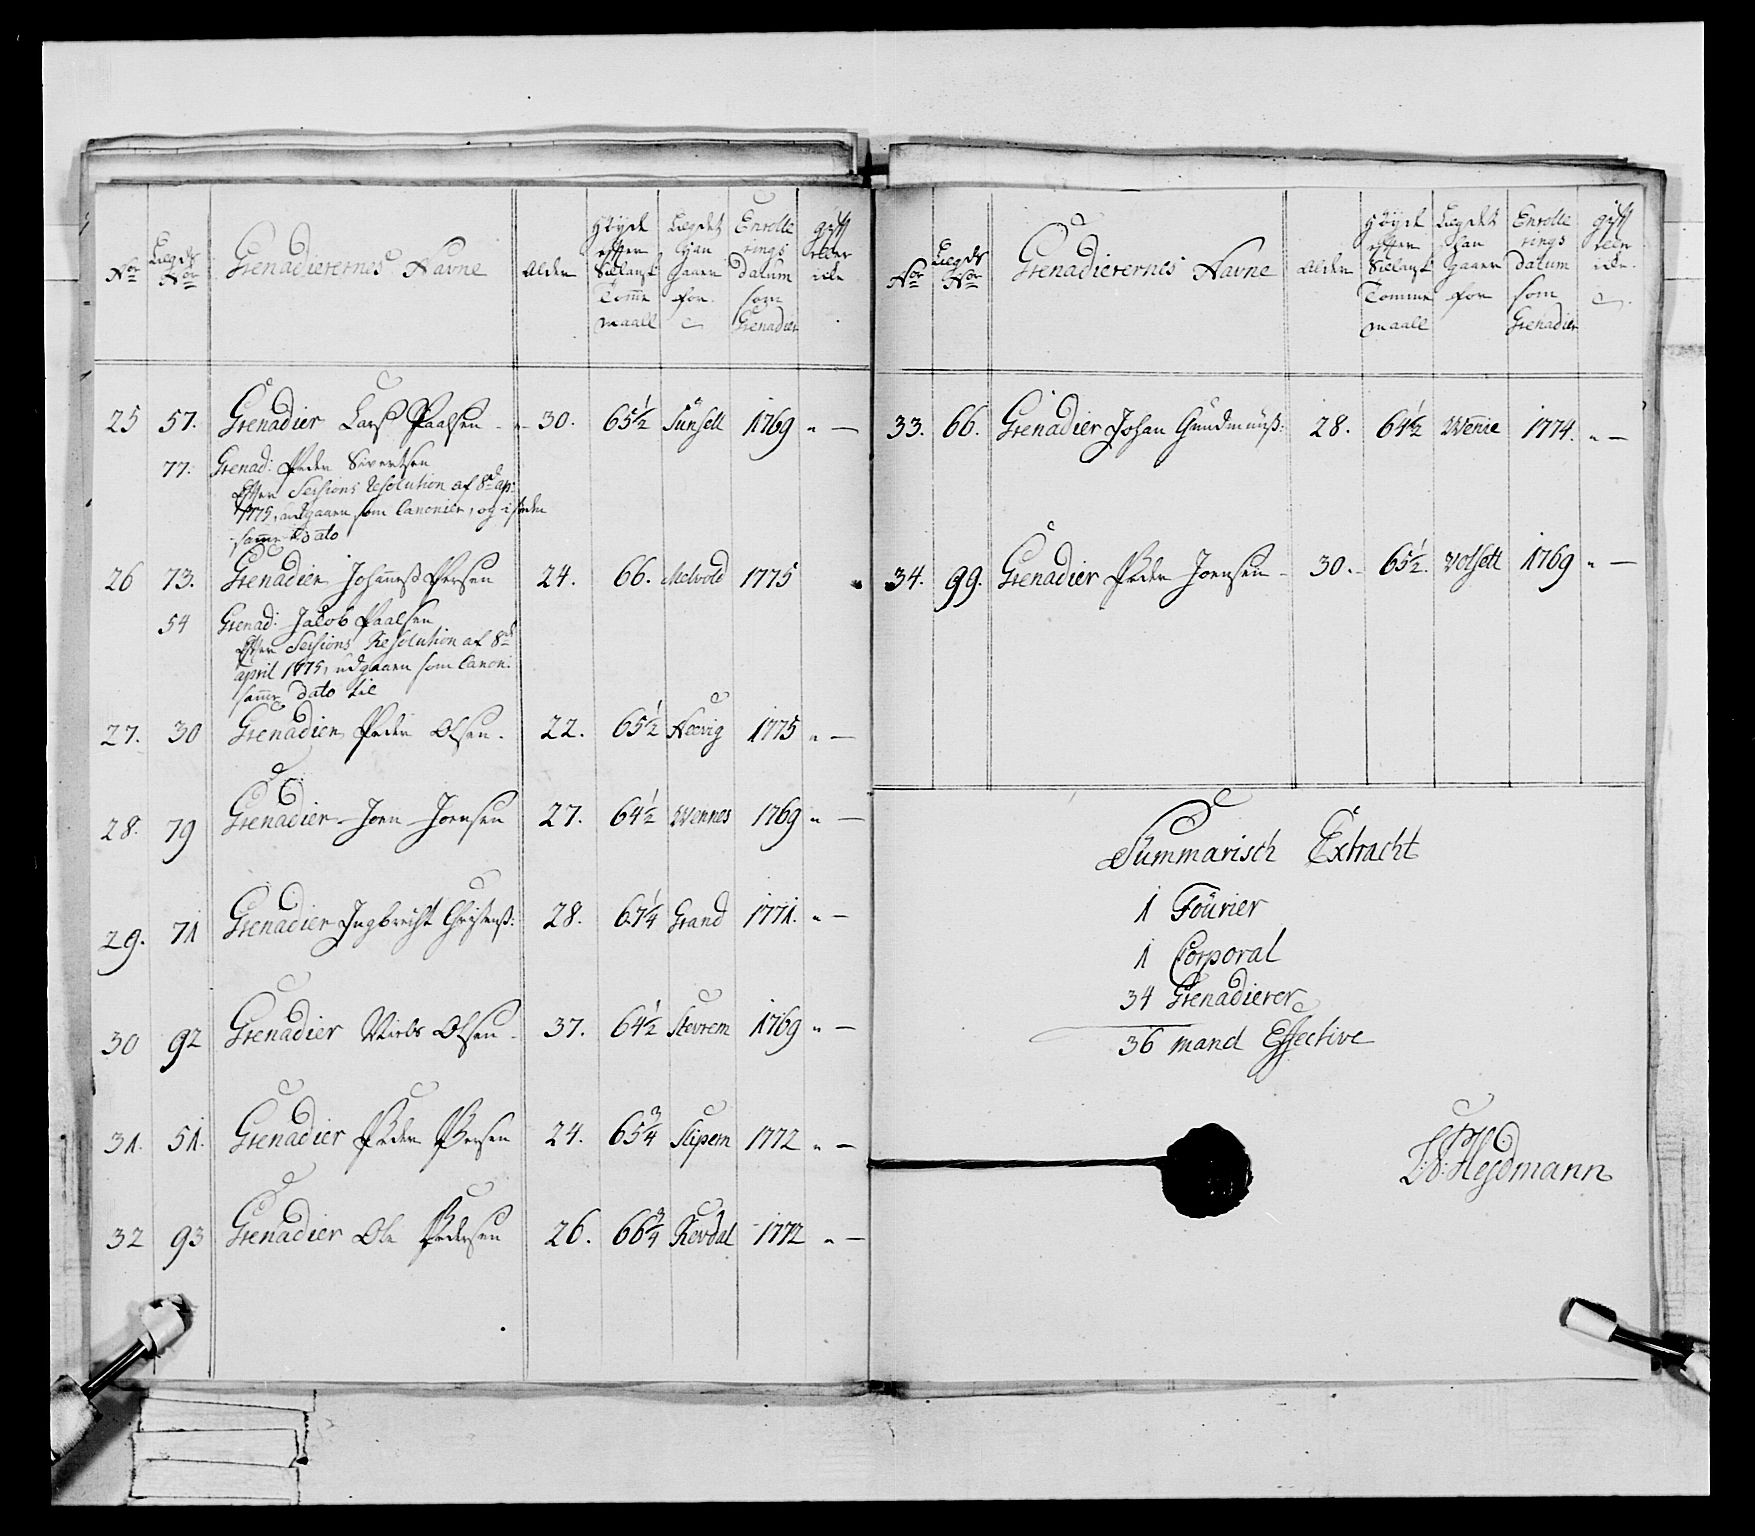 No Lægds No Grenadierernes Navne Alder Höyde effter Sielanzk Tomme maall Lægdet han gaaer for Enrolle rings datum som Grenadier gift eller icke
25 57. Grenadier Lars Paalsen - 30. 65½ Sunsett 1769 " —
77. Grenad: Peder Sivertsen
Efter Sessions Resolution af 8de apr:
1775, udgaaen som Canonier, og i steden
samme Dato
26 73. Grenadier Johannes Persen 24. 66. Melvold 1775
54 Grenad: Jacob Paalsen
Efter Sessions Resolution af 8de
april 1775, udgaaen som Canoni:
samme Dato til
27. 30 Grenadier Peder Olsen. 22. 65½ Neevig 1775 " —
28. 79 Grenadier Joen Joensen 27. 64½ Wennes 1769 " —
29. 71 Grenadier Ingbrecht Christens: 28. 67¼ Grand 1771. " —
30 92 Grenadier Niels Olsen. 37. 64½ Stevrem 1769 " —
31. 51. Grenadier Peder Persen 24. 65¾ Slipern 1772 " —
32 93 Grenadier Ole Pedersen 26. 66¾ Revdal 1772 " —
No Lægds No Grenadierernes Navne Alder Höyde effter Siellanzk Tomme maall Lægdet han gaaer for Enrolle rings datum som Grenadier gift eller icke.
33. 66. Grenadier Johan Gundmunds: 28. 64½ Wenie 1774. " —
34. 99. Grenadier Peder Joensen - 30. 65½. Volsett 1769 " —
Summarisch Extracht
1 Fourier
1 Corporal
34 Grenadierer
36 mand Effective
Heydmann